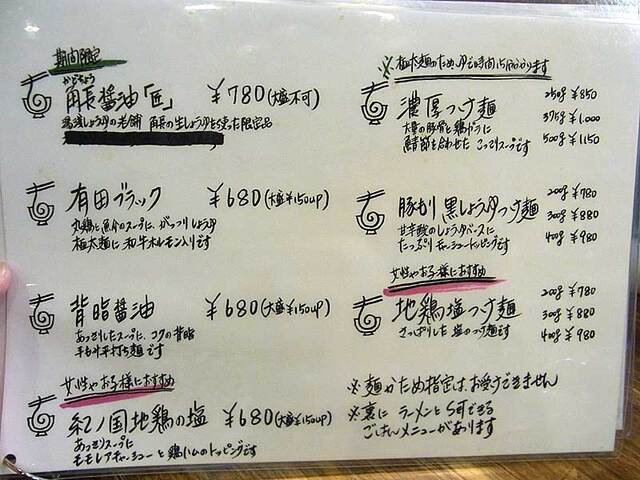 期間限定
かどちょう
角長醤油「匠」 ¥780(大盛不可)
湯浅しょうゆの老舗 角長の生しょうゆを使った限定品
有田ブラック ¥680(大盛¥150up)
丸鶏と魚介のスープに、がっつりしょうゆ
極太麺に和牛ホルモン入りです
背脂醤油 ¥680(大盛¥150up)
あっさりしたスープに、コクの背脂
手もみ平打ち麺です
女性やお子様におすすめ
紀ノ国地鶏の塩 ¥680(大盛¥150up)
あっさりスープに
モモレアチャーシューと鶏ハムのトッピングです
※極太麺のためゆで時間15分かかります
濃厚つけ麺
250g ¥850
375g ¥1.000
500g ¥1150
大量の豚骨と鶏がらに
鯖節を合わせたこってりスープです
豚もり黒しょうゆつけ麺
200g ¥780
300g ¥880
400g ¥980
甘辛酸のしょうゆベースに
たっぷりチャーシュートッピングです
女性やお子様におすすめ
地鶏塩つけ麺
200g ¥780
300g ¥880
400g ¥980
さっぱりした塩のつけ麺です
※麺かため指定は、お受けできません
※裏にラーメンとS可できる
ごはんメニューがあります